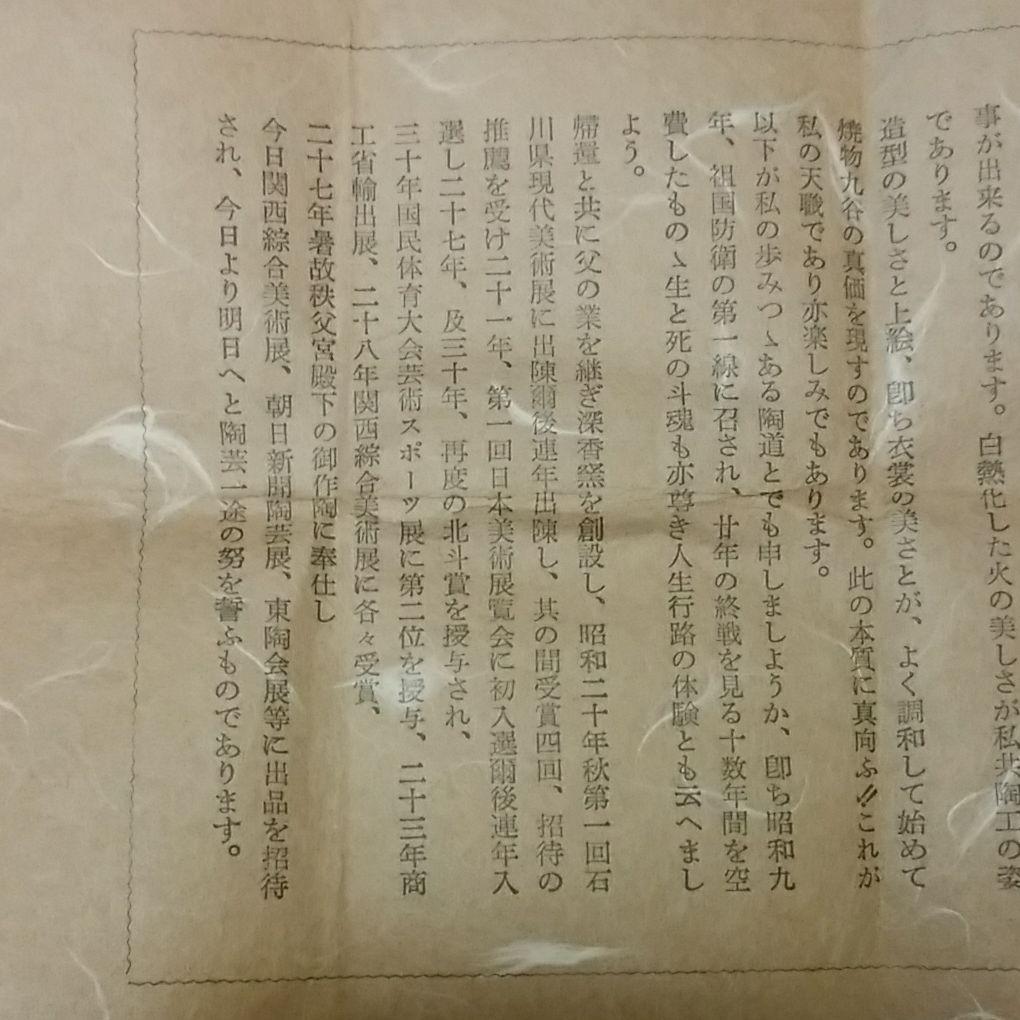 事が出来るのであります。白熱化した火の美しさが私共陶工の姿
であります。
造型の美しさと上絵、卽ち衣裳の美さとが、よく調和して始めて
焼物九谷の真価を現すのであります。此の本質に真向ふ!!これが
私の天職であり亦楽しみでもあります。
以下が私の歩みつゝある陶道とでも申しましようか、卽ち昭和九
年、祖国防衛の第一線に召され、廿年の終戦を見る十数年間を空
費したものゝ生と死の斗魂も亦尊き人生行路の体験とも云へまし
よう。
帰還と共に父の業を継ぎ深香窯を創設し、昭和二十年秋第一回石
川県現代美術展に出陳爾後連年出陳し、其の間受賞四回、招待の
推薦を受け二十一年、第一回日本美術展覧会に初入選爾後連年入
選し二十七年、及三十年、再度の北斗賞を授与され、
三十年国民体育大会芸術スポーツ展に第二位を授与、二十三年商
工省輸出展、二十八年関西綜合美術展に各々受賞、
二十七年暑故秩父宮殿下の御作陶に奉仕し
今日関西綜合美術展、朝日新聞陶芸展、東陶会展等に出品を招待
され、今日より明日へと陶芸一途の努を誓ふものであります。